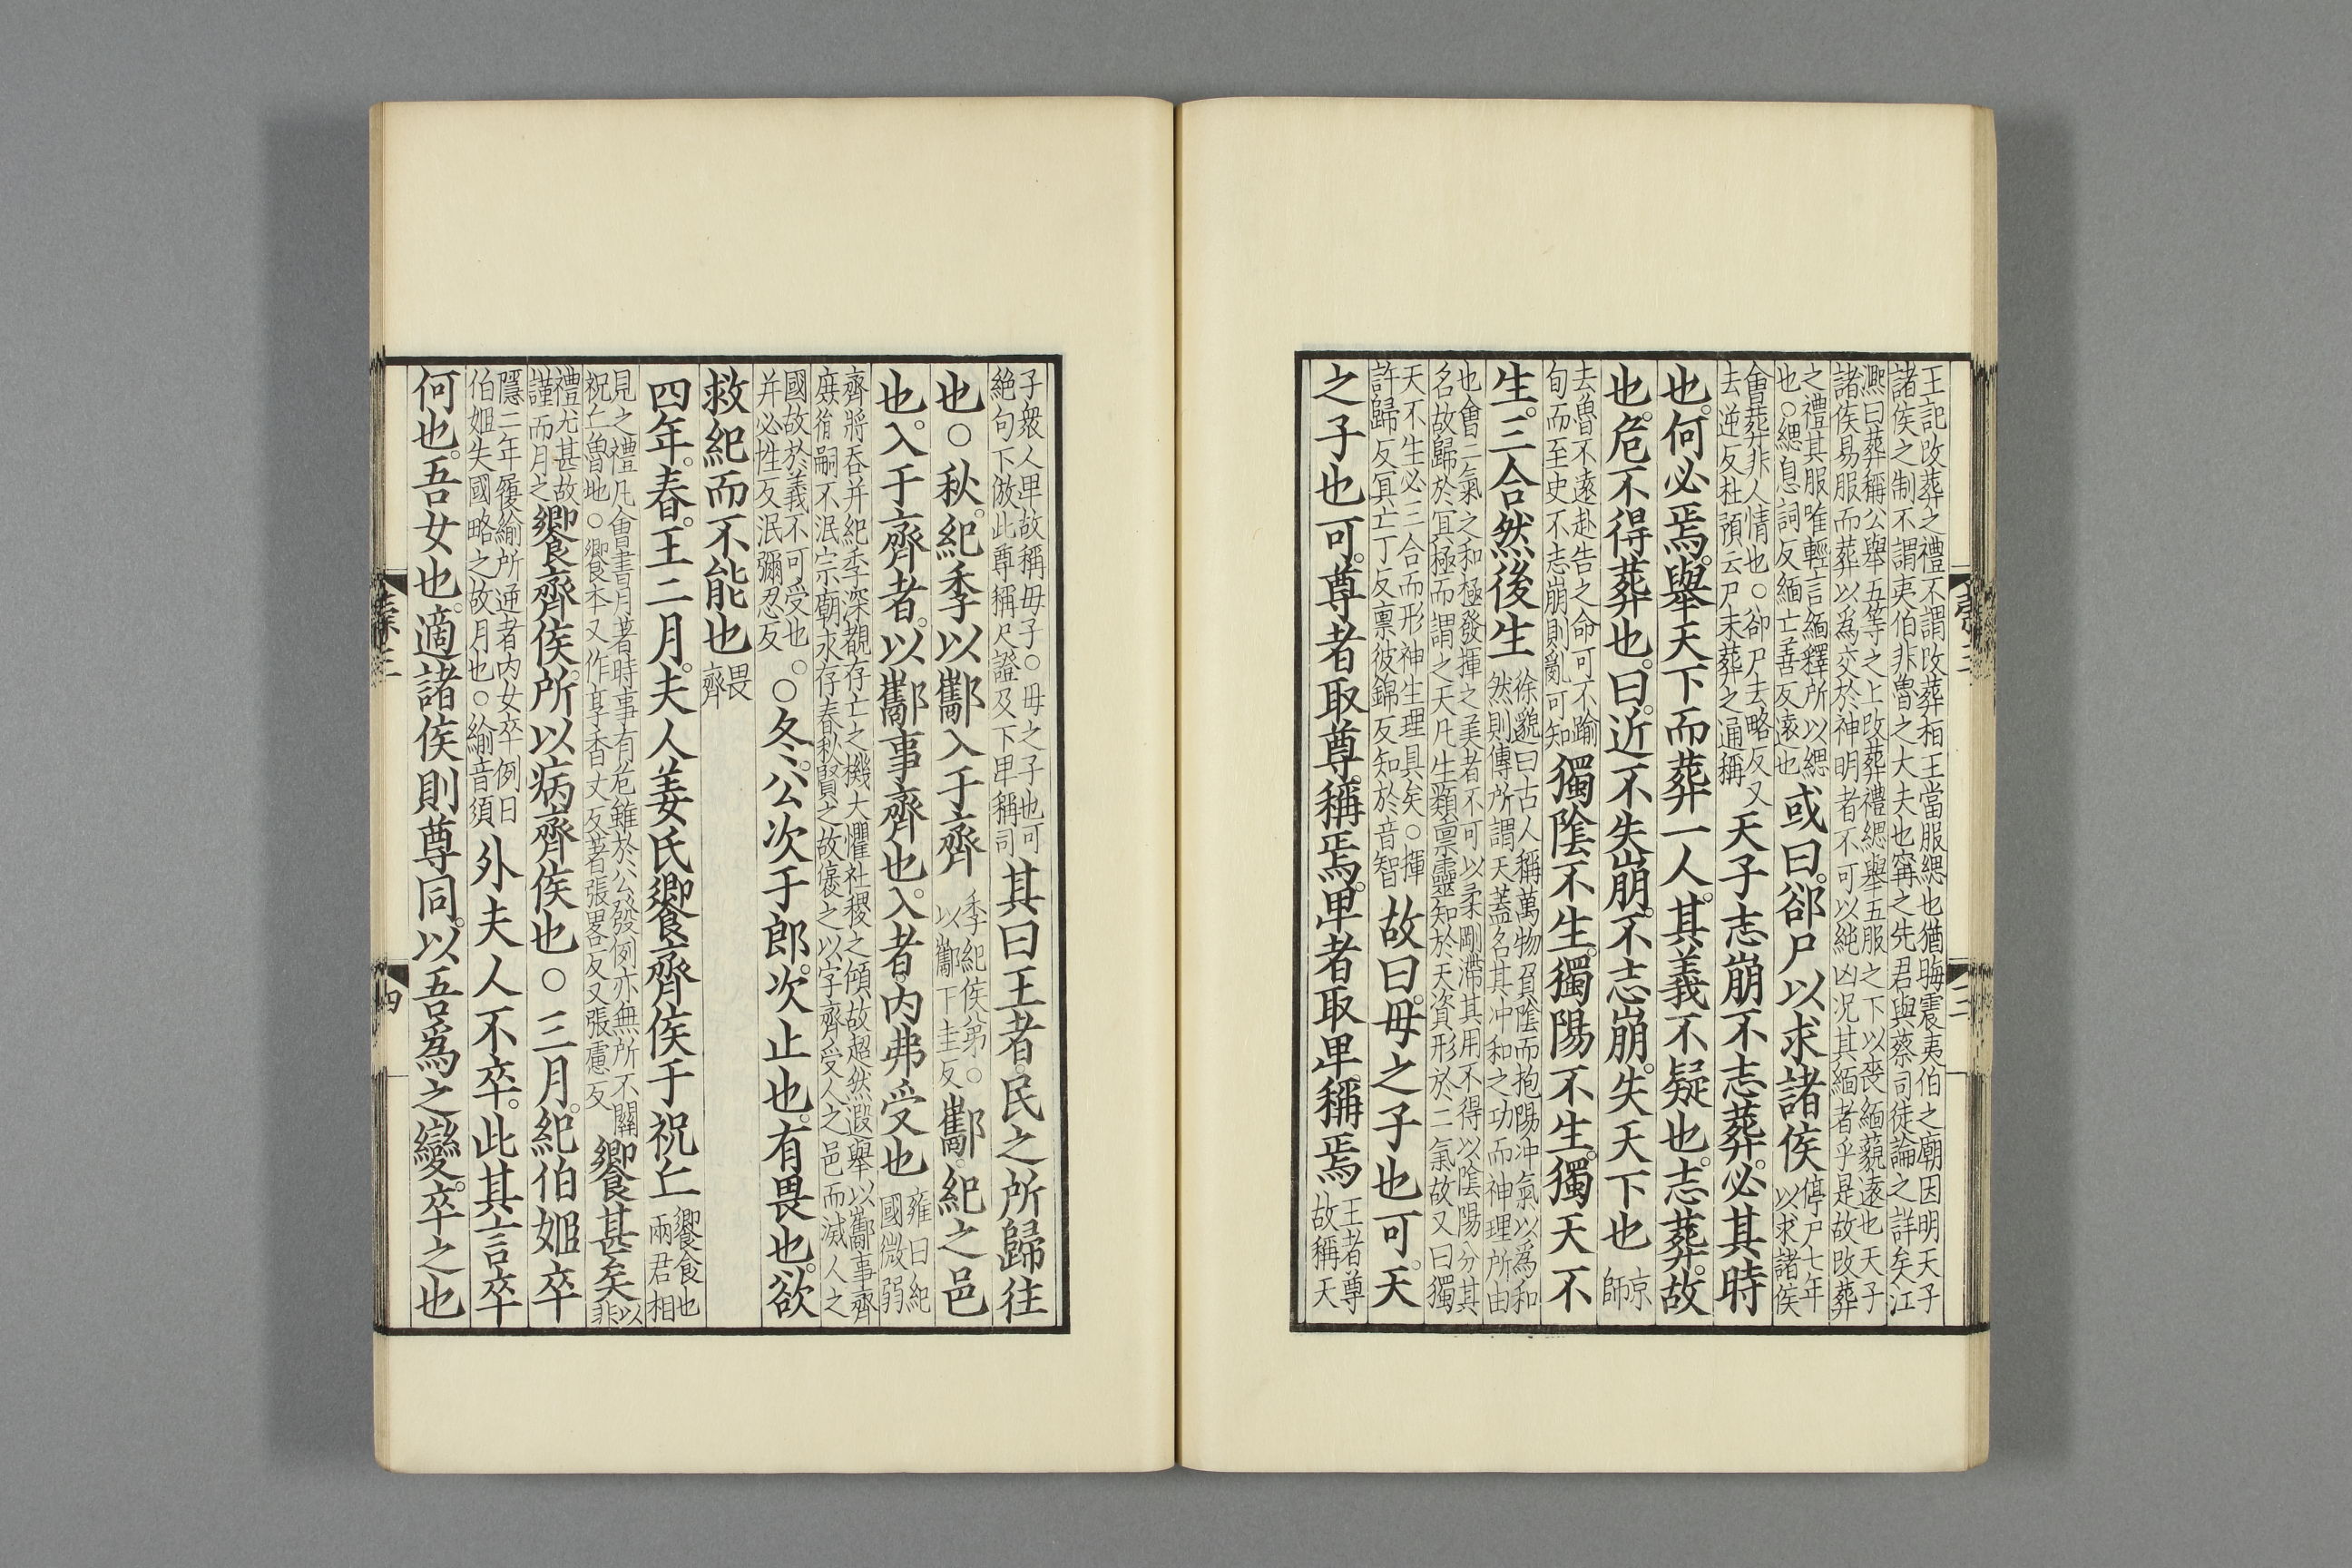 王記改葬之禮不謂改葬桓王當服緦也猶晦震夷伯之廟因明天子
諸侯之制不謂夷伯非魯之大夫也甯之先君與蔡司徒論之詳矣江
熈曰葬稱公舉五等之上改葬禮緦舉五服之下以喪緬藐遠也天子
諸侯易服而葬以爲交於神明者不可以純凶况其緬者乎是故改葬
之禮其服唯輕言緬釋所以緦也○緦息詞反緬亡善反遠也或曰郤尸以求諸侯停尸七年以求諸侯
會葬非人情也○卻尸去略反又去逆反杜預云尸未葬之通稱天子志崩不志葬必其時
也。何必焉。舉天下而葬一人。其義不疑也。志葬。故
也。危不得葬也。曰。近不失崩。不志崩。失天下也京師
去魯不遠赴告之命可不踰旬而至史不志崩則亂可知獨陰不生。獨陽不生。獨天不
生。三合然後生徐邈曰古人稱萬物負陰而抱陽冲氣以爲和然則傳所謂天蓋名其冲和之功而神理所由
也會二氣之和極發揮之美者不可以柔剛滯其用不得以陰陽分其
名故歸於冥極而謂之天凡生類禀靈知於天資形於二氣故又曰獨
天不生必三合而形神生理具矣○揮許歸反冥亡丁反禀彼錦反知於音智故曰。母之子也可。天
之子也可。尊者取尊稱焉。卑者取卑稱焉王者尊故稱天
子衆人卑故稱母子○母之子也可絶句下倣此尊稱尺證反下卑稱同其曰王者。民之所歸往
也○秋。紀季以酅入于齊季紀侯弟○以酅下圭反酅。紀之邑
也。入于齊者。以酅事齊也。入者。內弗受也雍曰紀國微弱
齊將吞并紀季深觀存亡之機大懼社稷之傾故超然遐舉以酅事齊
庶胤嗣不泯宗廟永存春秋賢之故襃之以字齊受人之邑而滅人之
國故於義不可受也。并必性反泯彌忍反○冬。公次于郎。次止也。有畏也。欲
救紀而不能也畏齊
四年。春。王二月。夫人姜氏饗齊侯于祝丘饗食也兩君相
見之禮凡會書月著時事有危雖於公發例亦無所不關祝丘魯地○饗本又作享香丈反著張畧反又張慮反饗甚矣以非
禮尤甚故謹而月之饗齊侯。所以病齊侯也○三月。紀伯姬卒
隱二年履緰所逆者內女卒例日伯姬失國略之故月也○緰音須外夫人不卒。此其言卒
何也。吾女也。適諸侯則尊同。以吾爲之變。卒之也
三
四